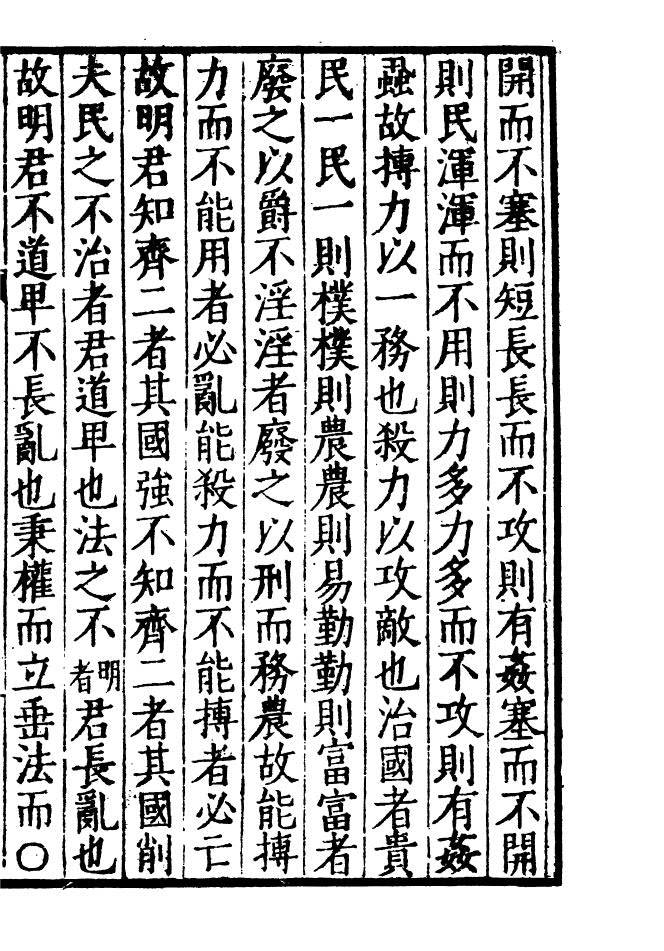 開而不塞則短長長而不攻則有姦塞而不開
則民渾渾而不用則力多力多而不攻則有姦
蝨故摶力以一務也殺力以攻敵也治國者貴
民一民一則樸樸則農農則易勤勤則富富者
廢之以爵不淫淫者廢之以刑而務農故能摶
力而不能用者必亂能殺力而不能摶者必亡
故明君知齊二者其國強不知齊二者其國削
夫民之不治者君道卑也法之不明者君長亂也
故明君不道卑不長亂也秉權而立垂法而〇